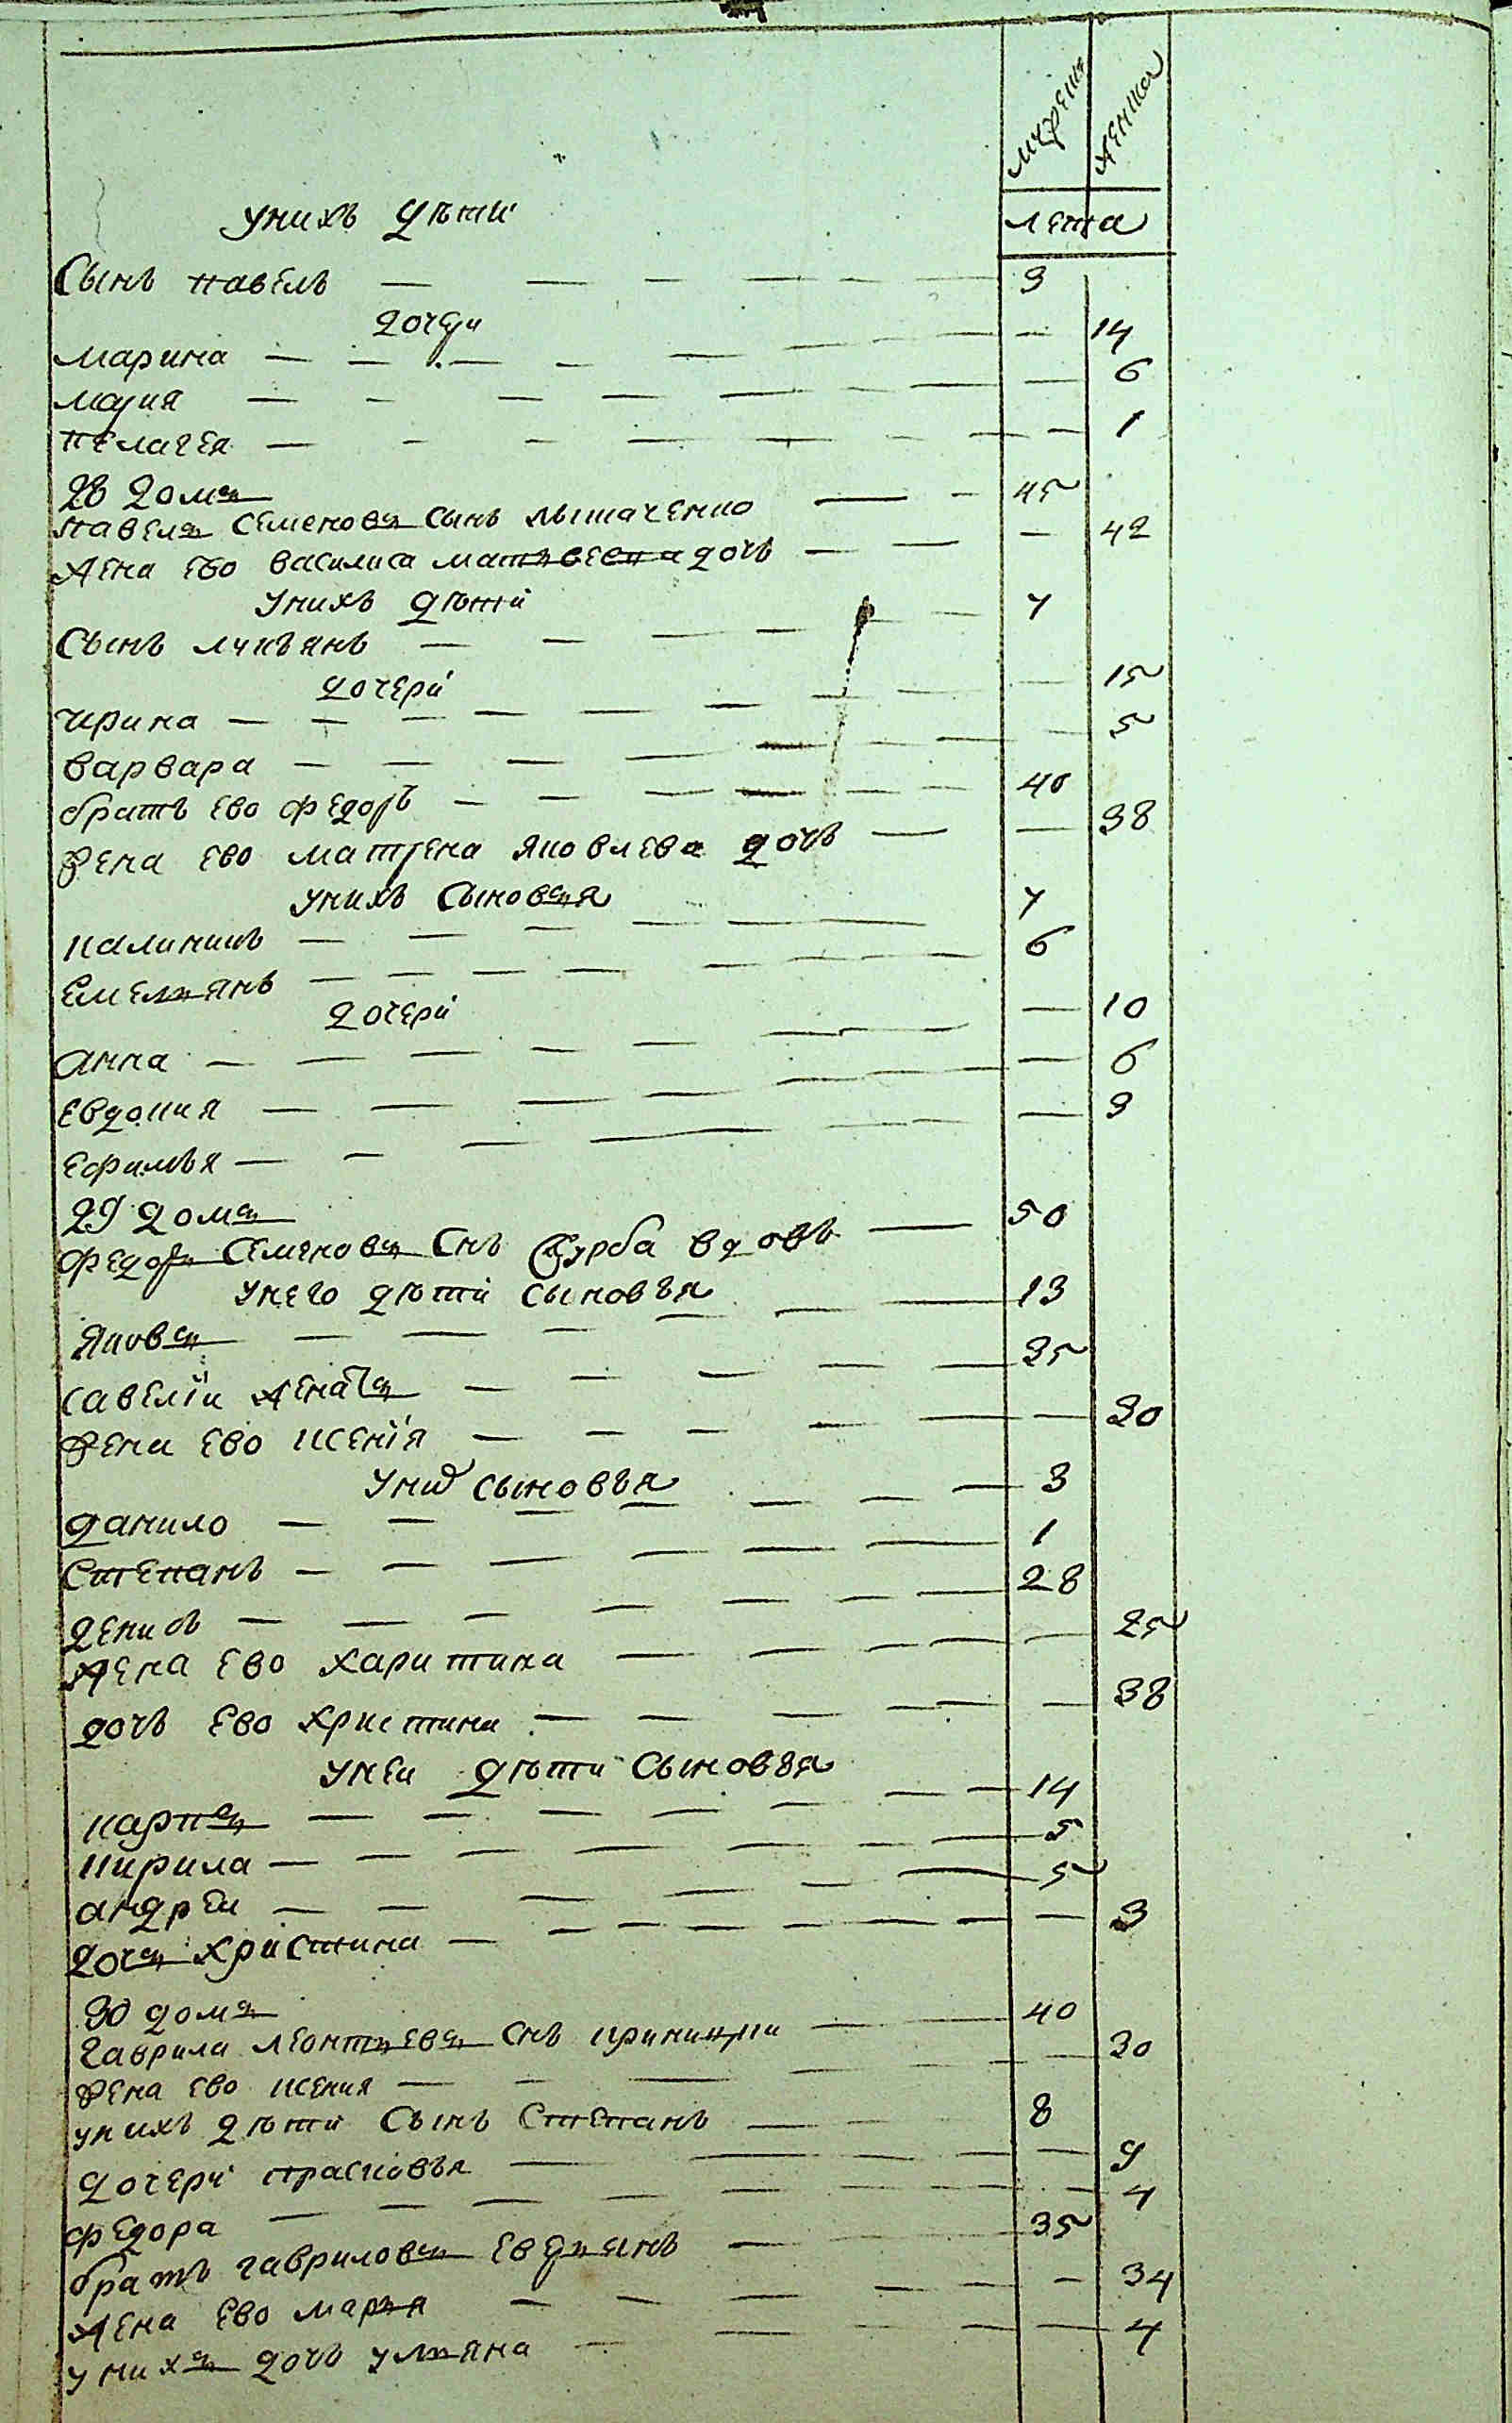 мужеска женска
лета
унихъ дѣти
Сынъ павелъ — 3
дочери
марина — 14
мария — 6
пелагея — 1
28 домъ
павелъ Семеновъ сынъ — 45
жена ево василиса матвеевна дочь — 42
унихъ дѣти
Сынъ лукъянъ — 7
дочери
ирина — 15
варвара — 5
братъ ево федоръ — 40
жена ево матрена яковлева дочь — 38
унихъ сыновья
калиникъ — 7
емельянъ — 6
дочери
анна — 10
евдокия — 6
ефимья — 3
29 домъ
федоръ Семеновъ Снъ вдовъ — 50
унего дѣти сыновъя
яковъ — 13
савелій женатъ — 35
жена ево ксенія — 30
уних сыновъя
данило — 3
Степанъ — 1
денисъ — 28
жена ево харитина — 25
дочь ево христина — 38
унеи дѣти сыновъя
карпъ — 14
кирила — 5
андреи — 5
дочь христина — 3
30 домъ
гаврила леонтьевъ Снъ — 40
жена ево ксения — 30
унихъ дѣти Сынъ Степанъ — 8
дочери прасковъя — 9
федора — 4
братъ гавриловъ — 35
жена ево марья — 34
унихъ дочь ульяна — 4